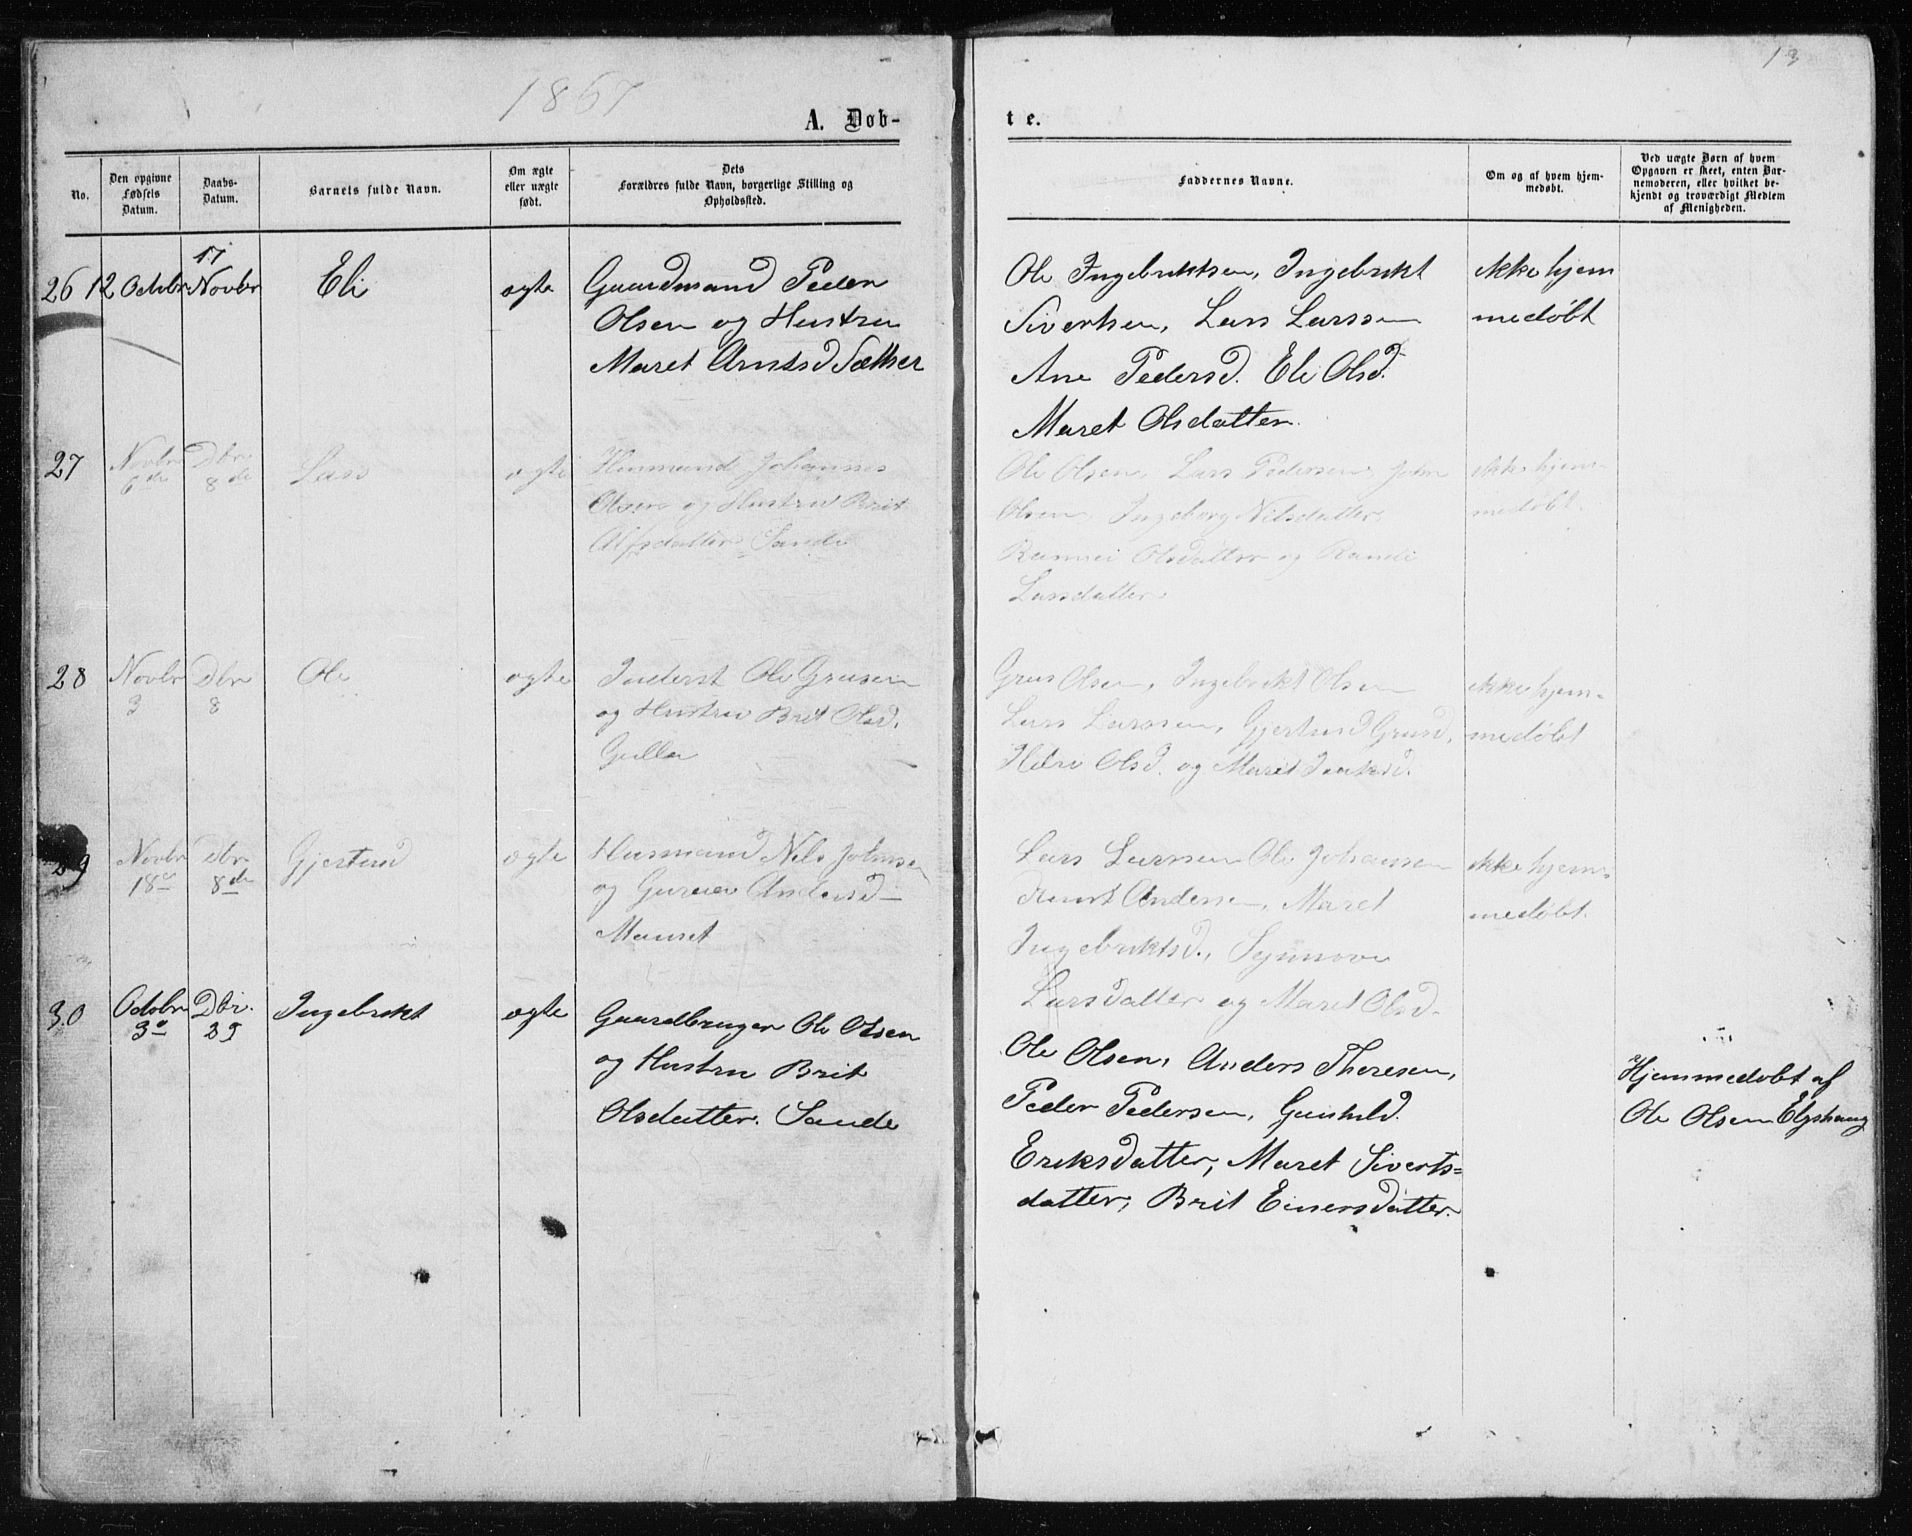 13
1867
A. Døb-
t e.
No.
Den opgivne Fødsels Datum.
Daabs-Datum.
Barnets fulde Navn.
Om ægte eller uægte født.
Dets Forældres fulde Navn, borgerlige Stilling og Opholdssted.
Faddernes Navne.
Om og af hvem hjemmedøbt.
Ved uægte Børn af hvem Opgaven er skeet, enten Barnemoderen, eller hvilket bekjendt og troværdigt Medlem af Menigheden.
26 12 Octobr 17 Novbr Eli ægte
Gaardmand Peder
Olsen og Hustru
Maret Arntsd Sæther
Ole Ingebriktsen, Ingebrikt
Sivertsen, Lars Larssen
Ane Pedersd. Eli Olsd.
Maret Olsdatter.
ikke hjem
medøbt
27 Novbr 6de Dbr 8de Lars ægte
Husmand Johannes
Olsen og Hustru Brit
Alfsdatter Sande
Ole Olsen, Lars Pedersen, John
Olsen, Ingeborg Nilsdatter,
Rannei Olsdatter og Randi
Larsdatter
ikke hjem-
medøbt.
28 Novbr 3 Dbr 8 Ole ægte
Inderst Ole Grusen
og Hustru Brit Olsd.
Gulla
Grus Olsen, Ingebrikt Olsen
Lars Larssen, Gjertrud Grusd,
Olsd. og Maret
ikke hjem-
medøbt
29 Novbr 18de Dbr 8de Gjertrud ægte
Husmand Nils Johnse
og Guruei Andersd
Mauset
Lars Larssen Ole Johansen
Knut Andersen, Maret
Ingebriktsd., Synnove
Larsdatter og Maret Olsd.
ikke hjem-
medøbt.
30 Octobr 30 Dbr. 29 Ingebrikt ægte
Gaardbruger Ole Olsen
og Hustru Brit
Olsdatter. Sande
Ole Olsen, Anders Thoresen,
Peder Pedersen, Gunhild
Eriksdatter, Maret Siverts=
datter, Brit Einersdatter.
Hjemmedøbt af
Ole Olsen Elgshaug